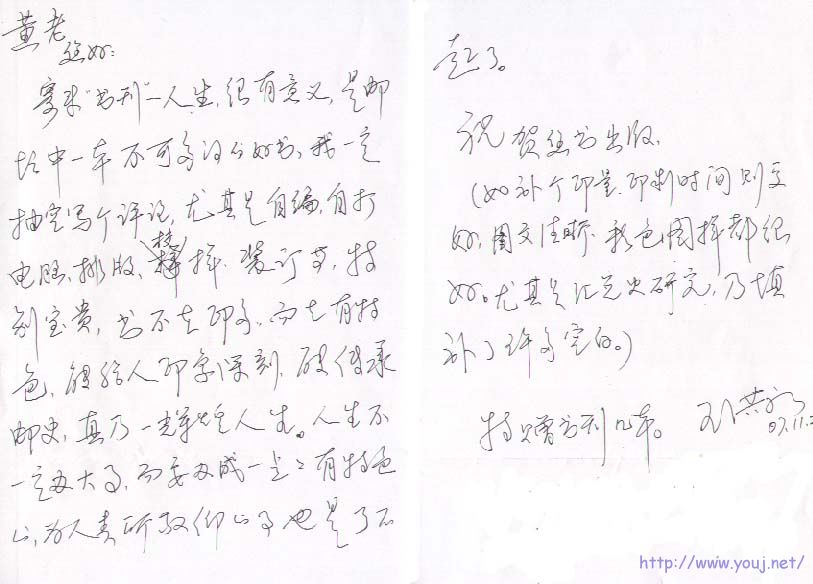 黄老
您好:
寄来"书刊"一人生,很有意义,是邮
坛中一本不可多得的好书,我一定
抽空写个评论,尤其是自编,自打
电脑,排版、校样、装订等,特
别宝贵,书不在印多,而在有特
色,能给人印象深刻,
邮史,真乃一辉煌人生。人生不
一定办大事,而要办成一点点有特色
的,为人类所敬仰的事也是了不
起了。
祝贺您书出版,
(如补个印量,印制时间则更
好,图文清晰,彩色图样都很
好。尤其是汇兑史研究,乃填
补了许多空白。)
特赠书刊几本。
07.11.
http://www.youj.net/